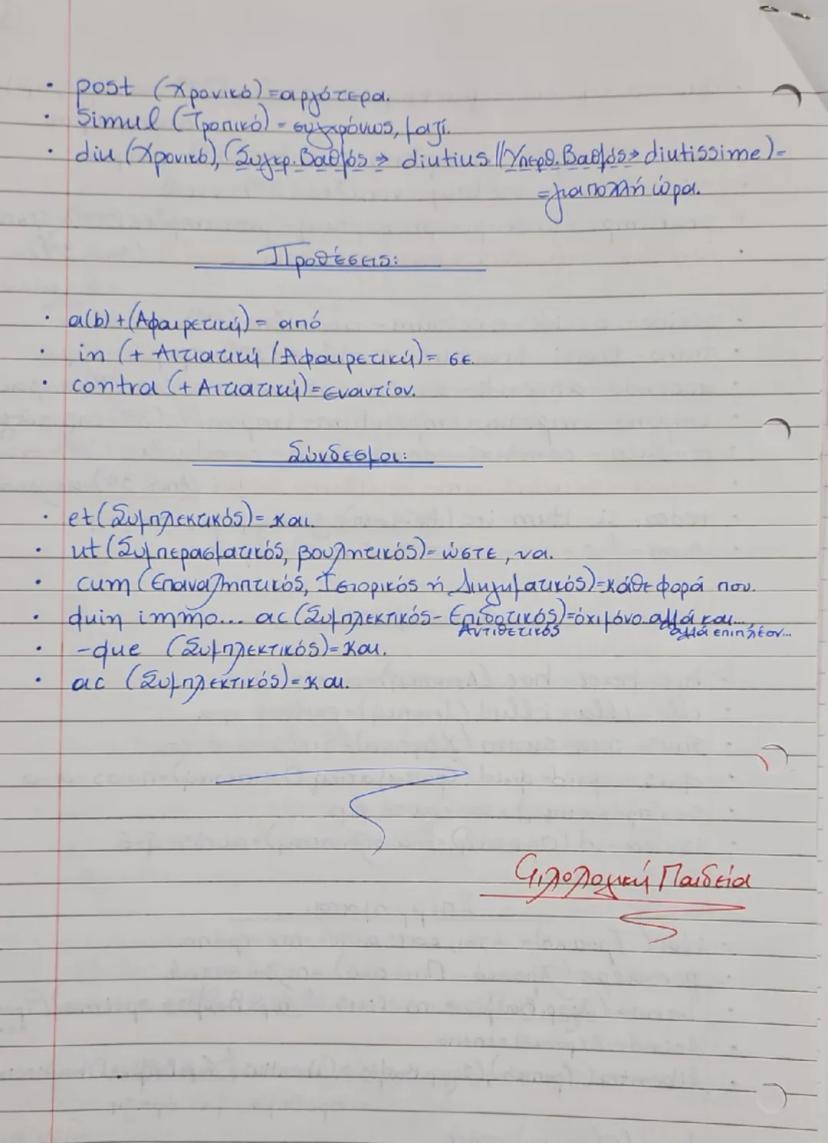 • post (Χρονικό)=αργότερα.
• Simul (Τροπικό)=συγχρόνως, μαζί.
• diu (Χρονικό), (Συγκρ. Βαθμός → diutius || Υπερθ. Βαθμός → diutissime)=
=για πολλή ώρα.
Προθέσεις:
• a(b)+(Αφαιρετική)= από
• in (+ Αιτιατική / Αφαιρετική)= σε.
• contra (+ Αιτιατική)=εναντίον.
Σύνδεσμοι:
• et (Συμπλεκτικός)= και.
• ut (Συμπερασματικός, βουλητικός)= ώστε, να.
• cum (Επαναληπτικός, Ιστορικός ή Διηγηματικός)=κάθε φορά που.
• quin immo... ac (Συμπλεκτικός- Επιδοτικός)=όχι μόνο αλλά και...
Αντιθετικός αλλά επιπλέον...
• -que (Συμπλεκτικός)= και.
• ac (Συμπλεκτικός)= και.
Φιλολογική Παιδεία